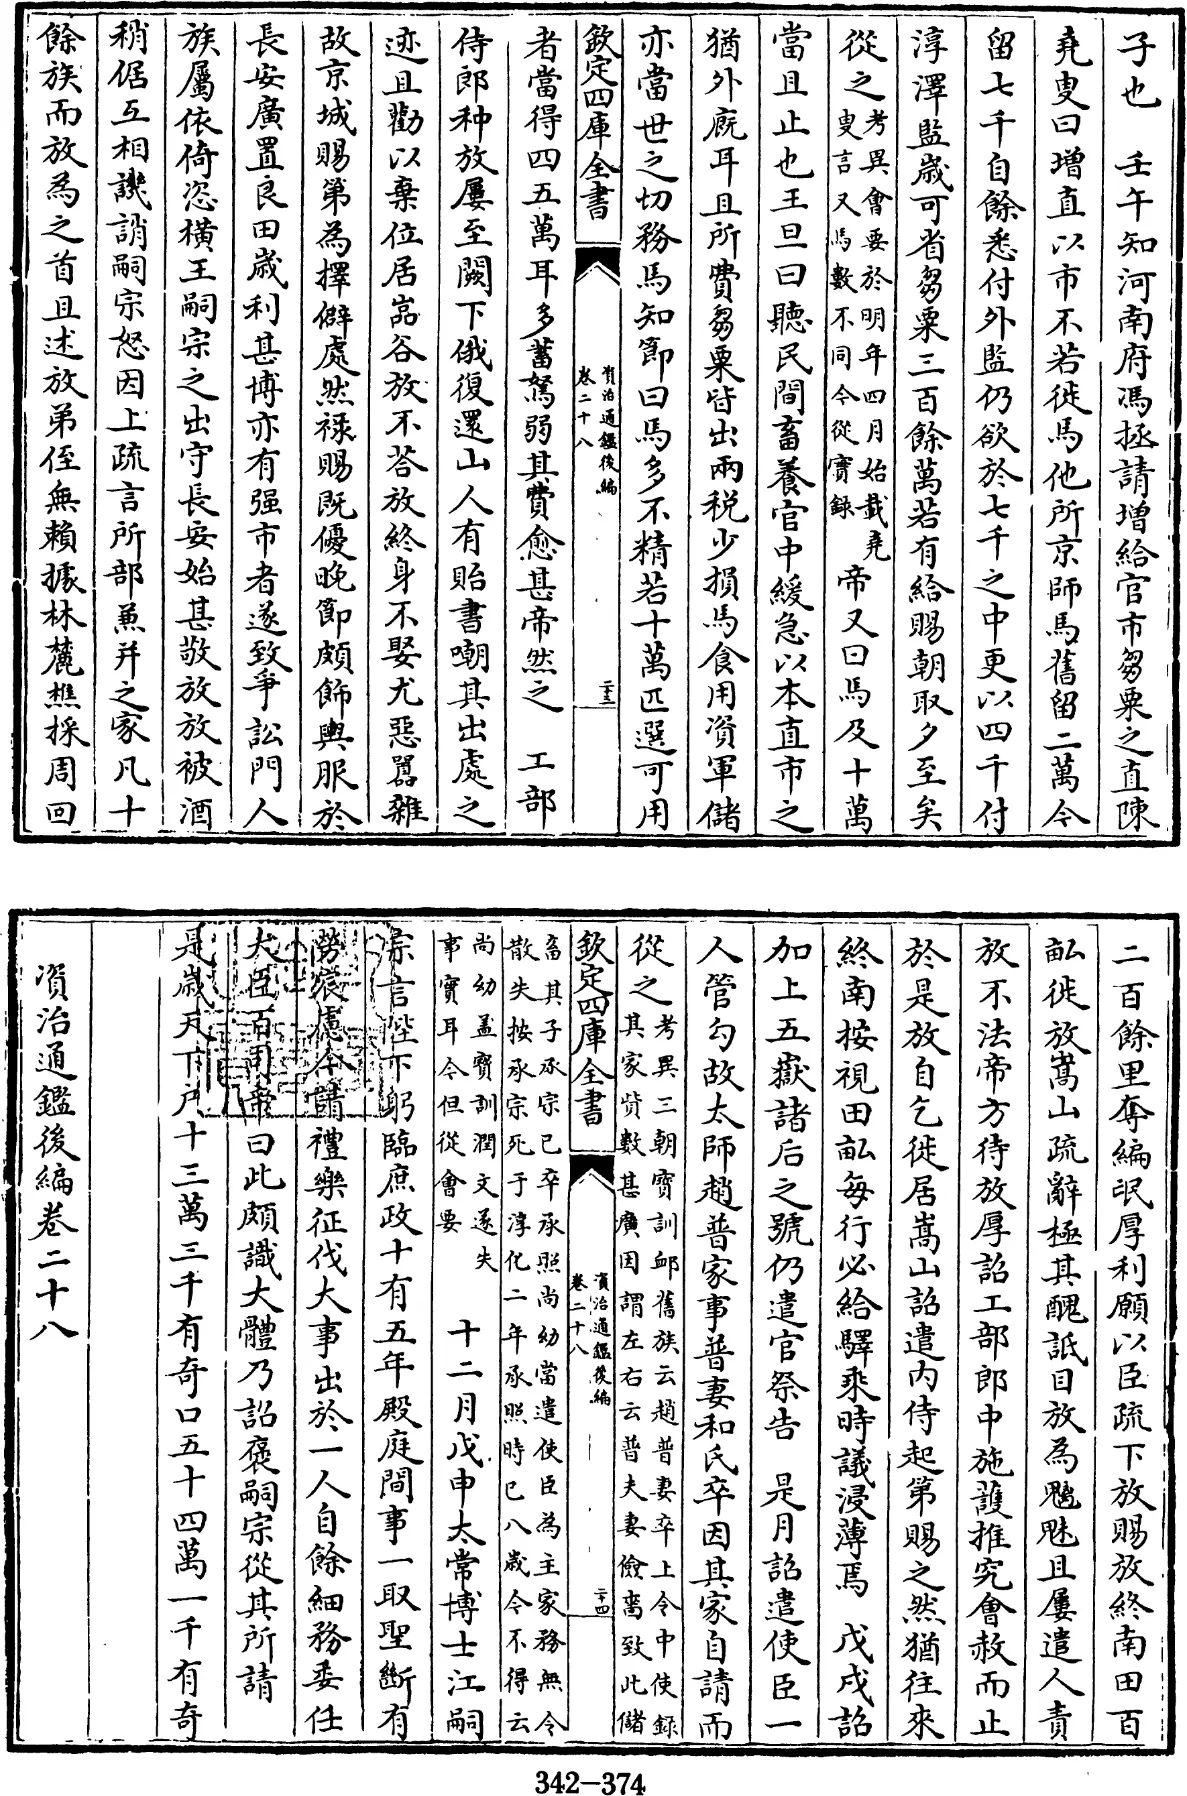 子也　壬午知河南府馮拯請增給官市芻粟之直陳
堯叟曰增直以市不若徙馬他所京師馬舊留二萬令
留七千自餘悉付外監仍欲於七千之中更以四千付
淳澤監歲可省芻粟三百餘萬若有給賜朝取夕至矣
從之考異會要於明年四月始載堯叟言又馬數不同今從實錄　帝又曰馬及十萬
當且止也王旦曰聽民間畜養官中緩急以本直市之
猶外廐耳且所費芻粟皆出兩稅少損馬食用資軍儲
亦當世之切務馬知節曰馬多不精若十萬匹選可用
欽定四庫全書　資治通鑑後編卷二十八　二十三
者當得四五萬耳多蓄駑弱其費愈甚帝然之　工部
侍郎种放屢至闕下俄復還山人有貽書嘲其出處之
迹且勸以棄位居嵓谷放不荅放終身不娶尤惡囂雜
故京城賜第為擇僻處然祿賜既優晚節頗飾輿服於
長安廣置良田歲利甚博亦有强市者遂致爭訟門人
族屬依倚恣橫王嗣宗之出守長安始甚敬放放被酒
稍倨互相譏誚嗣宗怒因上疏言所部兼并之家凡十
餘族而放為之首且述放弟侄無賴據林麓樵採周回
二百餘里奪編氓厚利願以臣疏下放賜放終南田百
畝徙放嵩山疏辭極其醜詆目放為魑魅且屢遣人責
放不法帝方待放厚詔工部郎中施護推究會赦而止
於是放自乞徙居嵩山詔遣内侍起第賜之然猶往來
終南按視田畝每行必給驛乘時議浸薄焉　戊戌詔
加上五嶽諸后之號仍遣官祭告　是月詔遣使臣一
人管勾故太師趙普家事普妻和氏卒因其家自請而
從之考異三朝寶訓邮舊族云趙普妻卒上令中使錄其家貲數甚廣因謂左右云普夫妻儉嗇致此儲
欽定四庫全書　資治通鑑後編卷二十八　二十四
畜其子承宗已卒承照尚幼當遣使臣為主家務無令散失按承宗死于淳化二年承照時已八歲令不得云
尚幼盖寶訓潤文遂失事實耳今但從會要　十二月戊申太常博士江嗣
宗言陛下躬臨庶政十有五年殿庭間事一取聖斷有
勞宸慮今請禮樂征伐大事出於一人自餘細務委任
大臣百司帝曰此頗識大體乃詔褒嗣宗從其所請
是歲天下戶十三萬三千有奇口五十四萬一千有奇
資治通鑑後編卷二十八
342-374